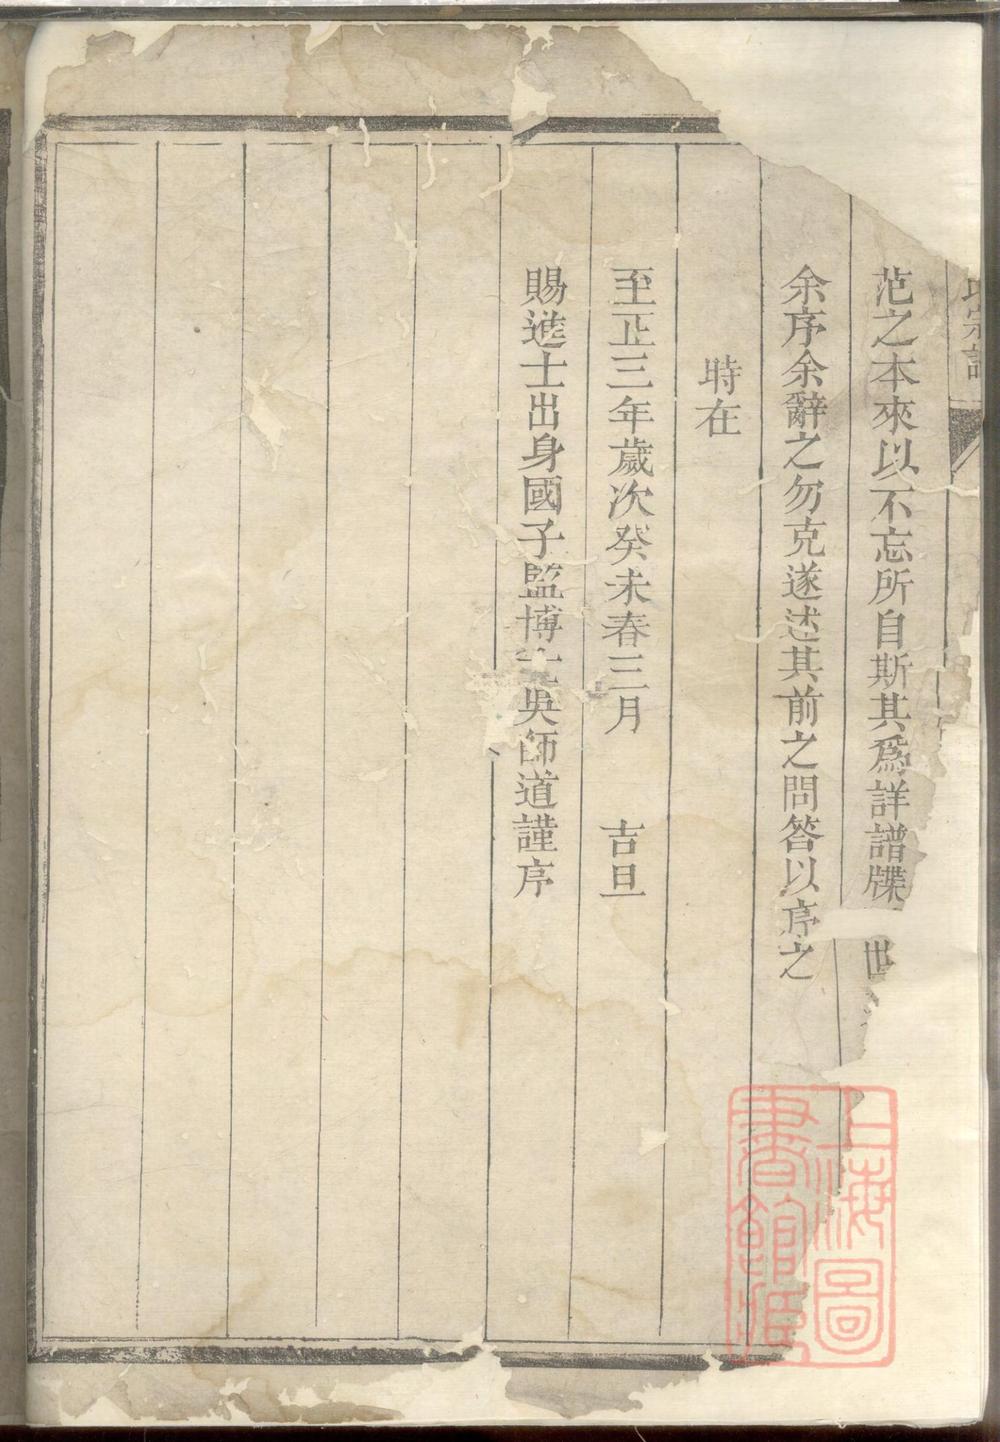 宗譜
范之本來以不忘所自斯其爲詳譜牒
世
余序余辭之勿克遂述其前之問答以序之
時在
至正三年歲次癸未春三月 吉旦
賜進士出身國子監博士吳師道謹序
上海圖
書館藏